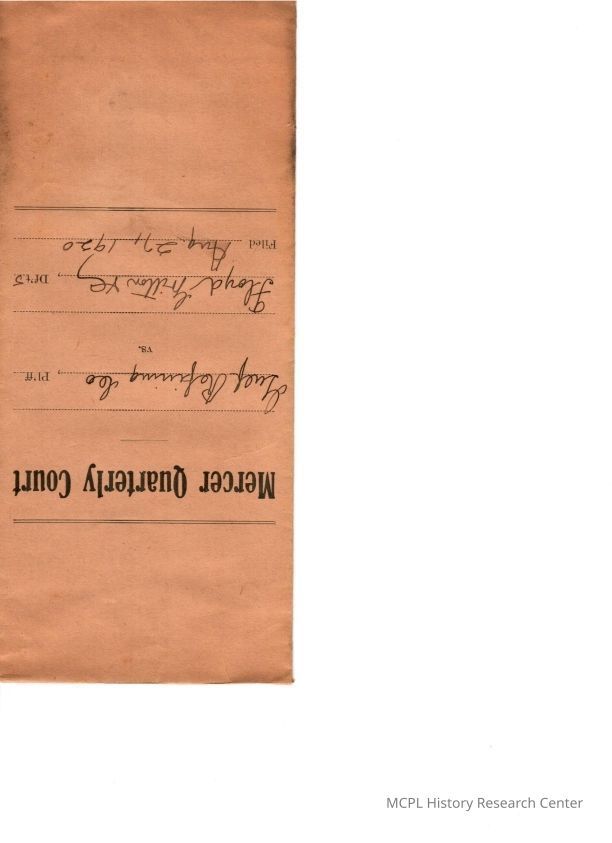 Mercer Quarterly Court
Gulf Refining Co, Pl'ff
vs.
Floyd &c, Df't.s
Filed Aug. 27, 1920
MCPL History Research Center